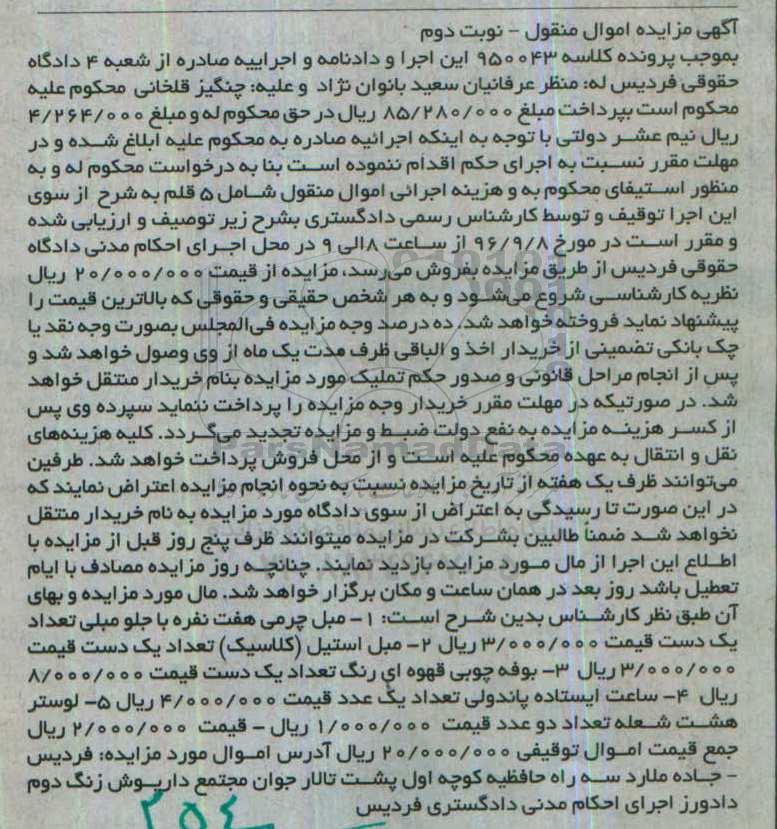 آگهی مزایده اموال منقول - نوبت دوم
بموجب پرونده کلاسه ۹۵۰۰۴۳ این اجرا و دادنامه و اجراییه صادره از شعبه ۴ دادگاه
حقوقی فردیس له: منظر عرفانیان سعید بانوان نژاد و علیه: چنگیز قلخانی محکوم علیه
محکوم است بپرداخت مبلغ ۸۵/۲۸۰/۰۰۰ ریال در حق محکوم له و مبلغ ۴/۲۶۴/۰۰۰
ریال نیم عشر دولتی با توجه به اینکه اجرائیه صادره به محکوم علیه ابلاغ شده و در
مهلت مقرر نسبت به اجرای حکم اقدام ننموده است بنا به درخواست محکوم له و به
منظور استیفای محکوم به و هزینه اجرائی اموال منقول شامل ۵ قلم به شرح از سوی
این اجرا توقیف و توسط کارشناس رسمی دادگستری بشرح زیر توصیف و ارزیابی شده
و مقرر است در مورخ ۹۶/۹/۸ از ساعت ۸ الی ۹ در محل اجرای احکام مدنی دادگاه
حقوقی فردیس از طریق مزایده بفروش می‌رسد، مزایده از قیمت ۲۰/۰۰۰/۰۰۰ ریال
نظریه کارشناسی شروع می‌شود و به هر شخص حقیقی و حقوقی که بالاترین قیمت را
پیشنهاد نماید فروخته خواهد شد. ده درصد وجه مزایده فی‌المجلس بصورت وجه نقد یا
چک بانکی تضمینی از خریدار اخذ و الباقی ظرف مدت یک ماه از وی وصول خواهد شد و
پس از انجام مراحل قانونی و صدور حکم تملیک مورد مزایده بنام خریدار منتقل خواهد
شد. در صورتیکه در مهلت مقرر خریدار وجه مزایده را پرداخت ننماید سپرده وی پس
از کسر هزینه مزایده به نفع دولت ضبط و مزایده تجدید می‌گردد. کلیه هزینه‌های
نقل و انتقال به عهده محکوم علیه است و از محل فروش پرداخت خواهد شد. طرفین
می‌توانند ظرف یک هفته از تاریخ مزایده نسبت به نحوه انجام مزایده اعتراض نمایند که
در این صورت تا رسیدگی به اعتراض از سوی دادگاه مورد مزایده به نام خریدار منتقل
نخواهد شد ضمناً طالبین بشرکت در مزایده میتوانند ظرف پنج روز قبل از مزایده با
اطلاع این اجرا از مال مورد مزایده بازدید نمایند. چنانچه روز مزایده مصادف با ایام
تعطیل باشد روز بعد در همان ساعت و مکان برگزار خواهد شد. مال مورد مزایده و بهای
آن طبق نظر کارشناس بدین شرح است: ۱- مبل چرمی هفت نفره با جلو مبلی تعداد
یک دست قیمت ۳/۰۰۰/۰۰۰ ریال ۲- مبل استیل (کلاسیک) تعداد یک دست قیمت
۳/۰۰۰/۰۰۰ ریال ۳- بوفه چوبی قهوه ای رنگ تعداد یک دست قیمت ۸/۰۰۰/۰۰۰
ریال ۴- ساعت ایستاده پاندولی تعداد یک عدد قیمت ۴/۰۰۰/۰۰۰ ریال ۵- لوستر
هشت شعله تعداد دو عدد قیمت ۱/۰۰۰/۰۰۰ ریال - قیمت ۲/۰۰۰/۰۰۰ ریال
جمع قیمت اموال توقیفی ۲۰/۰۰۰/۰۰۰ ریال آدرس اموال مورد مزایده: فردیس
- جاده ملارد سه راه حافظیه کوچه اول پشت تالار جوان مجتمع داریوش زنگ دوم
دادورز اجرای احکام مدنی دادگستری فردیس
۲۵۴